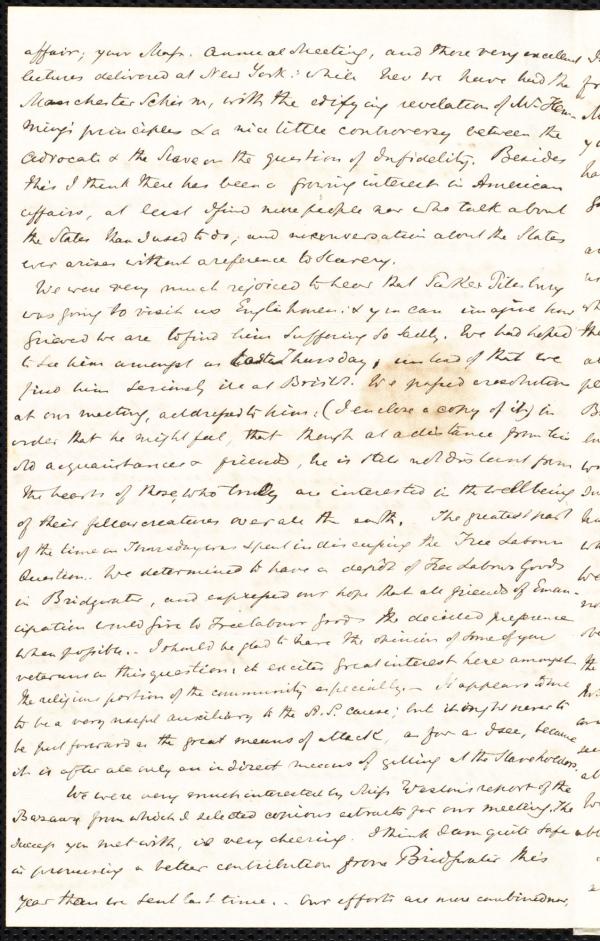 affair; your Mass. Annual Meeting, and those very excellent
lectures delivered at New York: which here we have had the
Manchester Schism, with the edifying revelation of Mr Hem-
ming's principles & a nice little controversy between the
Advocate & the Slave on the question of Infidelity. Besides
this I think there has been a growing interest in American
affairs, at least I find more people now who talk about
the States than I used to do; and no conversation about the States
ever arises without a reference to Slavery.
We were very much rejoiced to hear that Parker Pilsbury
was going to visit us Englishmen: & you can imagine how
grieved we are to find him suffering so sadly. We had hoped
to see him amongst us last Thursday, instead of that we
find him seriously ill at Bristol. We passed a resolution
at our meeting, addressed to him: (I enclose a copy of it) in
order that he might feel, that though at a distance from his
old acquaintances & friends, he is still not distant from
the hearts of those, who truly are interested in the wellbeing
of their fellow creatures over all the earth. The greatest part
of the time on Thursday was spent in discussing the Free Labour
Question. We determined to have a depôt of Free Labour Goods
in Bridgwater, and expressed our hope that all friends of Eman-
cipation would give to Free labour goods the decided preference
when possible.. I should be glad to have the opinion of some of you
veterans on this question, it excites great interest here amongst
the religious portion of the community especially. It appears to me
to be a very useful auxiliary to the A.S. cause; but it ought never to
be put forward as the great means of attack, as for a I see, because
it is after all only an indirect means of getting at the Slaveholders.
We were very much interested by Miss Weston's report of the
Bazaar from which I selected copious extracts for our meeting. The
success you met with, is very cheering. I think I am quite safe
in promising a better contribution from Bridgwater this
year than we sent last time.. Our efforts are more combined now,